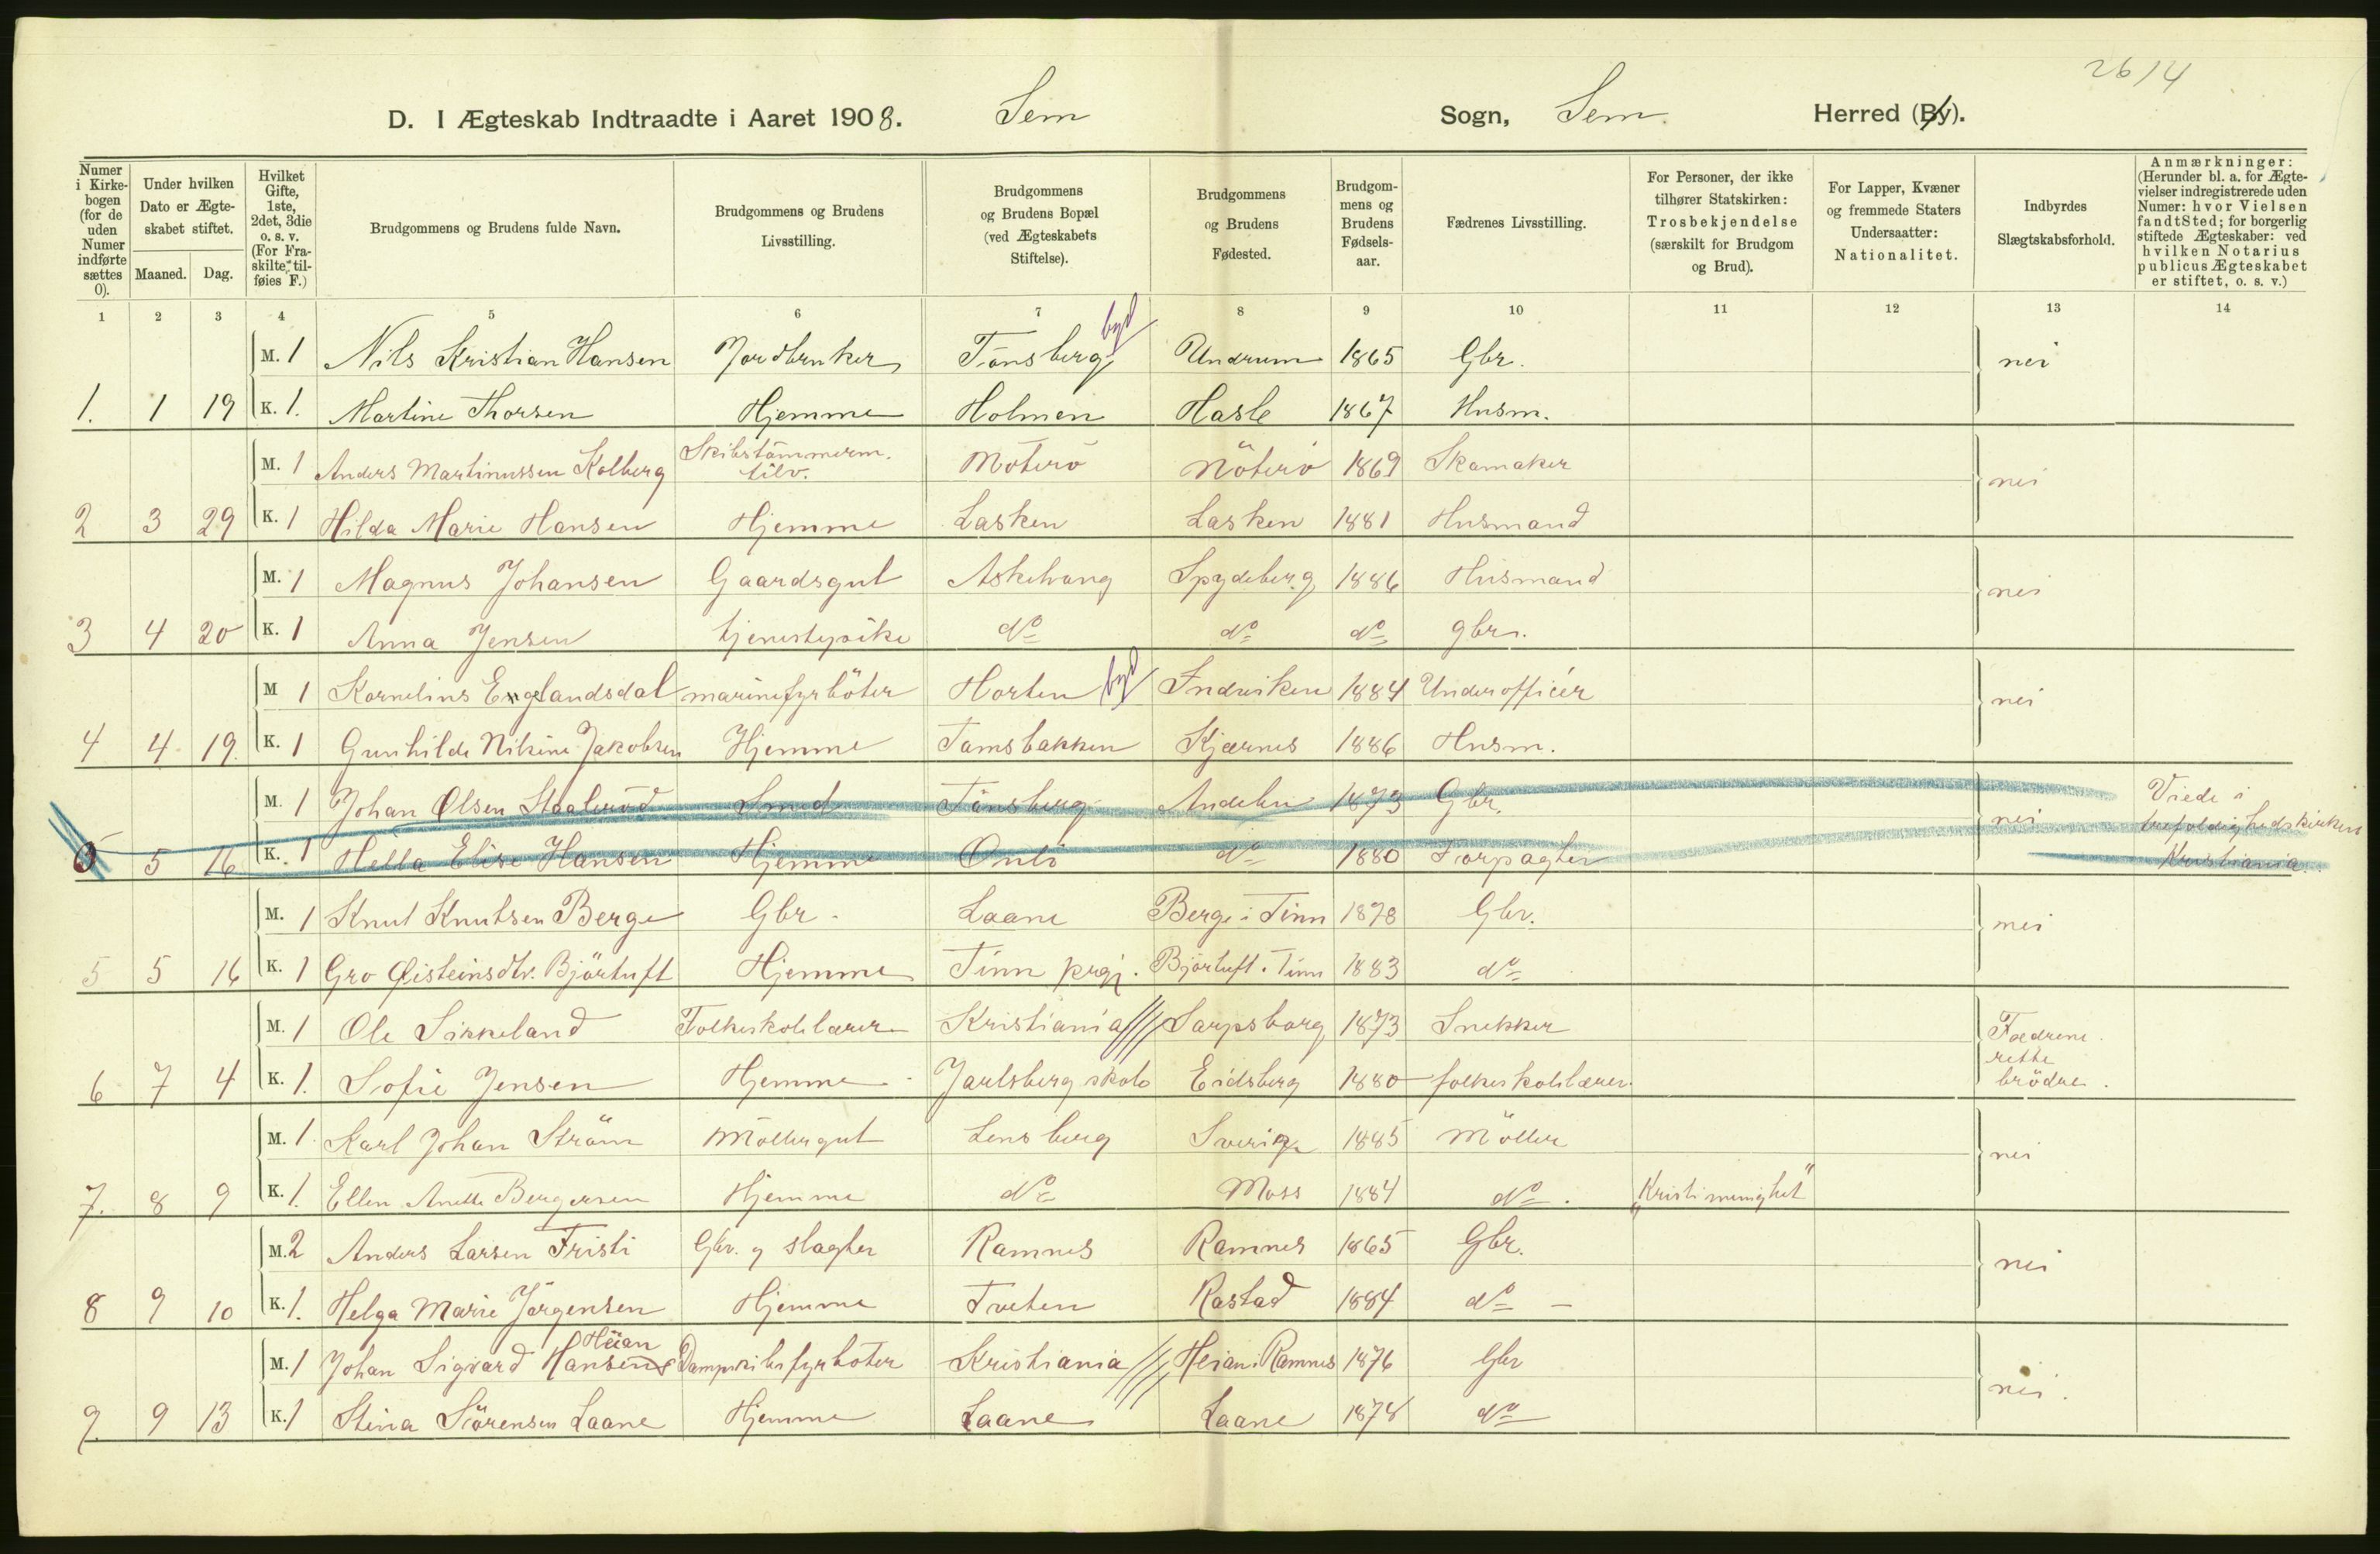 2614
D. I Ægteskab Indtraadte i Aaret 1908. Sem Sogn, Sem Herred (By).
Numer i Kirkebogen (for de uden Numer indførte sættes 0).
Under hvilken Dato er Ægteskabet stiftet.
Maaned. Dag.
Hvilket Gifte, 1ste, 2det, 3die o. s. v. (For Fraskilte tilføies F.)
Brudgommens og Brudens fulde Navn.
Brudgommens og Brudens Livsstilling.
Brudgommens og Brudens Bopæl (ved Ægteskabets Stiftelse).
Brudgommens og Brudens Fødested.
Brudgommens og Brudens Fødselsaar.
Fædrenes Livsstilling.
For Personer, der ikke tilhører Statskirken: Trosbekjendelse (særskilt for Brudgom og Brud).
For Lapper, Kvæner og fremmede Staters Undersaatter: Nationalitet.
Indbyrdes Slægtskabsforhold.
Anmærkninger: (Herunder bl. a. for Ægtevielser indregistrerede uden Numer: hvor Vielsen fandt Sted; for borgerlig stiftede Ægteskaber: ved hvilken Notarius publicus Ægteskabet er stiftet, o. s. v.)
1 2 3 4 5 6 7 8 9 10 11 12 13 14
M. 1 Nils Kristian Hansen Jordbruker Tönsberg byd Undrum 1865 Gbr. nei
1. 1 19 K. 1. Martine Thorsen Hjemme Holmen Hasle 1867 Husm.
M. 1 Anders Martinussen Kolberg Skibstömmerm. tilv. Nöterö Nöterö 1869 Skomaker nei
2 3 29 K. 1 Hilda Marie Hansen Hjemme Lasken Lasken 1881 Husmand
M. 1 Magnus Johansen Gaardsgut Askehaug Spydeberg 1886 Husmand nei
3 4 20 K. 1 Anna Jensen tjenestepike do do do gbr.
M 1 Kornelius Englandsdal marinefyrböter Horten byd Indviken 1884 Underofficér nei
4 4 19. K. 1 Gunhilde Nikine Jakobsen Hjemme Tamsbakken Kjærnes 1886 Husm.
M. 1 Johan Olsen Staaleröd Smed Tönsberg Andebu 1873 Gbr. nei Viede i trefoldighedskirken
5 16 K. 1 Hella Elise Hansen Hjemme do 1880 Forpagter Kristiania.
M. 1 Knut Knutsen Berge Gbr. Laane Berge i Tinn 1878 Gbr. nei
5 5 16 K. 1 Gro Øisteinsdtr. Björtuft Hjemme Tinn prgj. Björtuft i Tinn 1883 do
M. 1 Ole Sikkeland Folkeskolelærer Kristiania Sarpsborg 1873 Snekker Fædrene rette brödre.
6 7 4 K. 1. Sofie Jensen Hjemme Jarlsberg skole Eidsberg 1880 folkeskolelærer.
M. 1. Karl Johan Ström Möllergut Lensberg Sverige 1885 Möller nei
7. 8 9 K. 1. Ellen Anette Bergersen Hjemme do Moss 1884 do. „Kristi menighet"
M. 2 Anders Larsen Fristi Gbr. og slagter Ramnes Ramnes 1865 Gbr. nei
8 9 10 K. 1. Helga Marie Jörgensen Hjemme Tveten Rastad 1884 do
M. 1 Johan Sigvard Hansen Heian Dampskibsfyrböter Kristiania Heian i Ramnes 1876 Gbr nei.
9. 9 13 K. 1 Stina Sörensen Laane Hjemme Laane Laane 1878 do